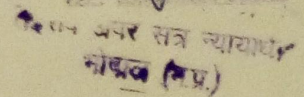 अपर सत्र न्यायाधीश
भोपाल (म.प्र.)